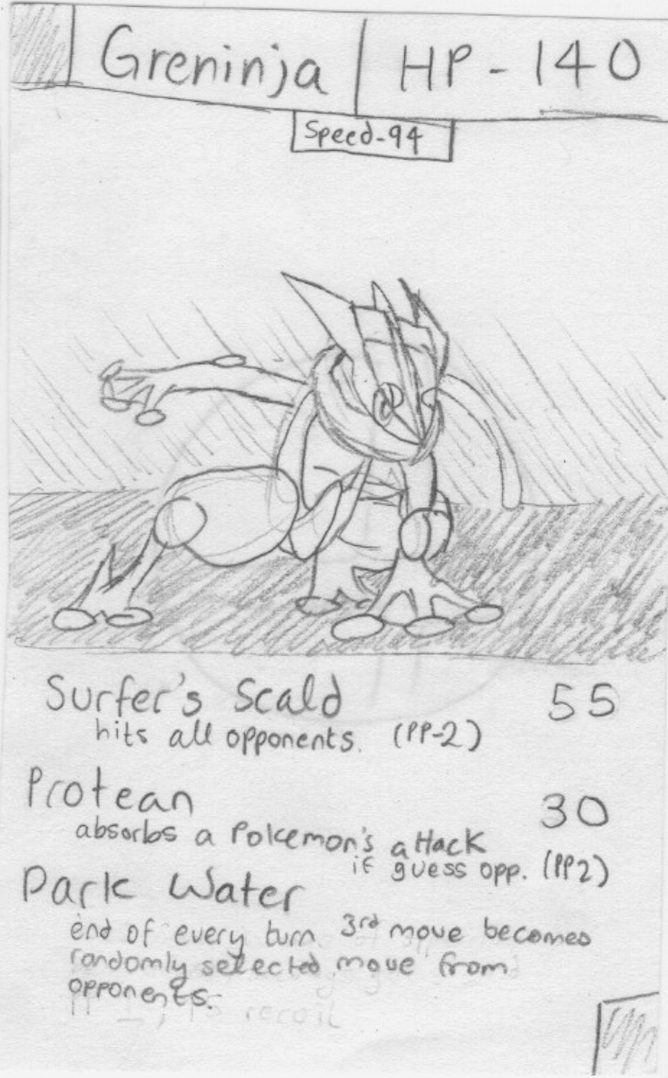 Greninja HP - 140
Speed-94
Surfer's Scald 55
hits all opponents. (PP-2)
Protean 30
absorbs a Pokemon's attack
if guess opp. (PP2)
Dark Water
end of every turn 3rd move becomes
randomly selected move from
opponents.
recoil